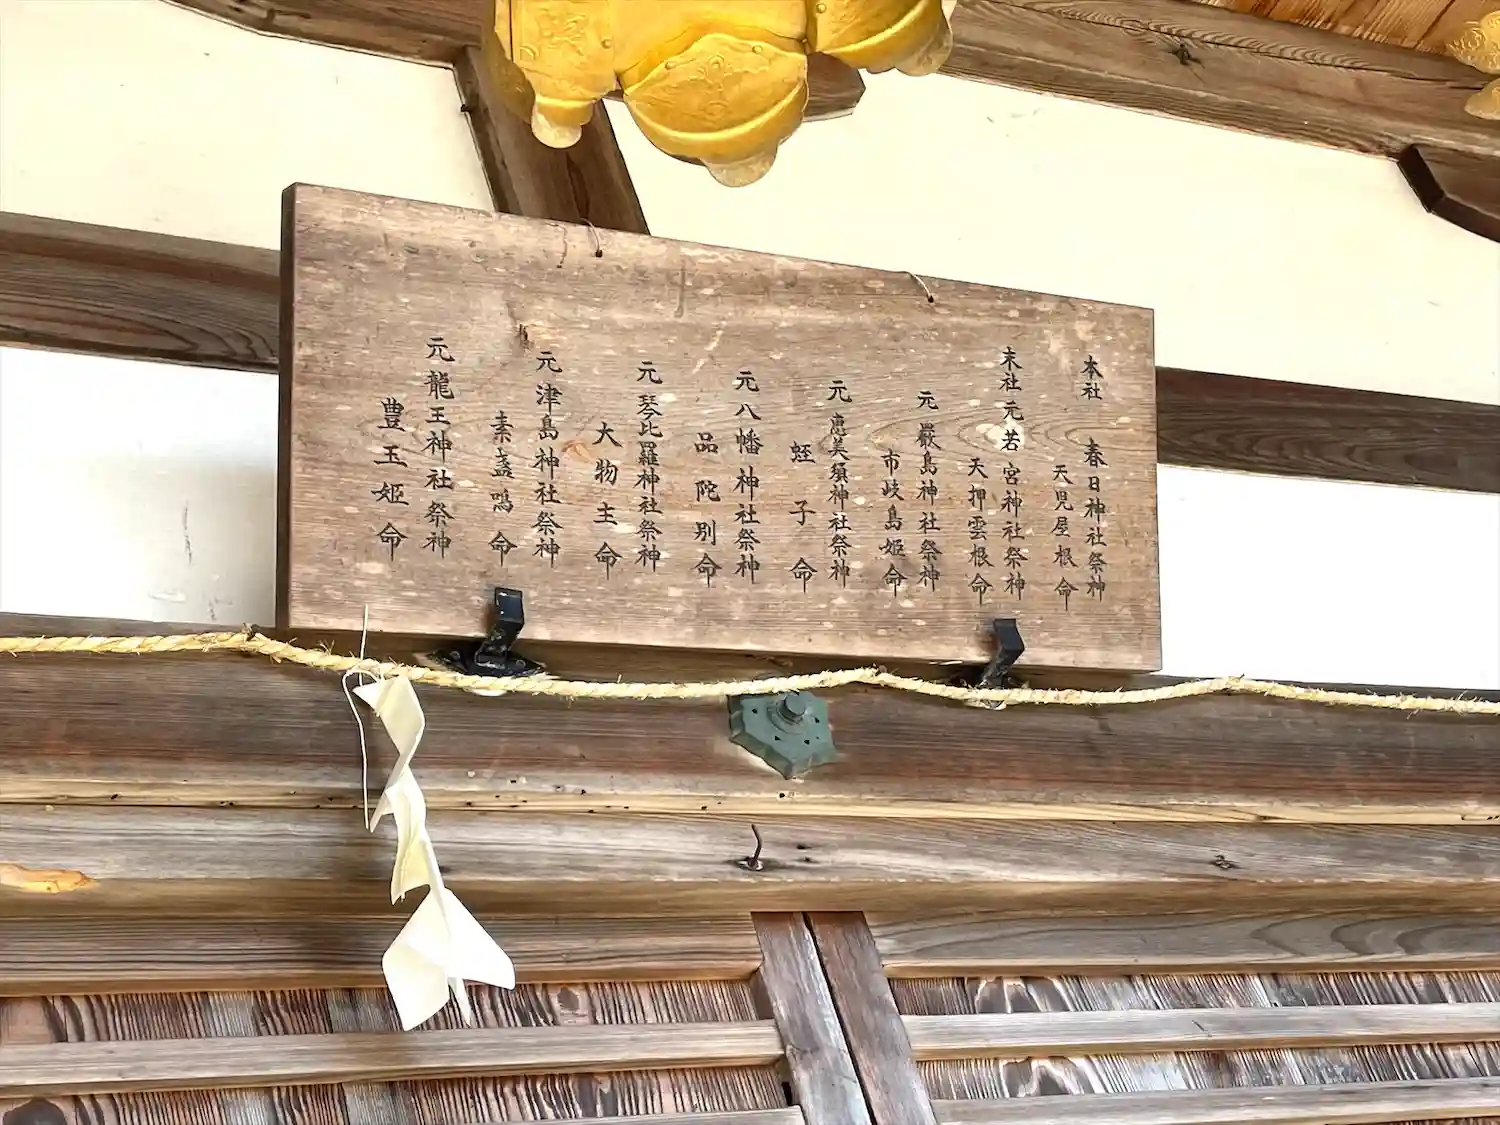 本社 春日神社祭神
天児屋根命
末社 元若宮神社祭神
天押雲根命
元厳島神社祭神
市岐島姫命
元恵美須神社祭神
蛭子命
元八幡神社祭神
品陀別命
元琴比羅神社祭神
大物主命
元津島神社祭神
素盞嗚命
元龍王神社祭神
豊玉姫命